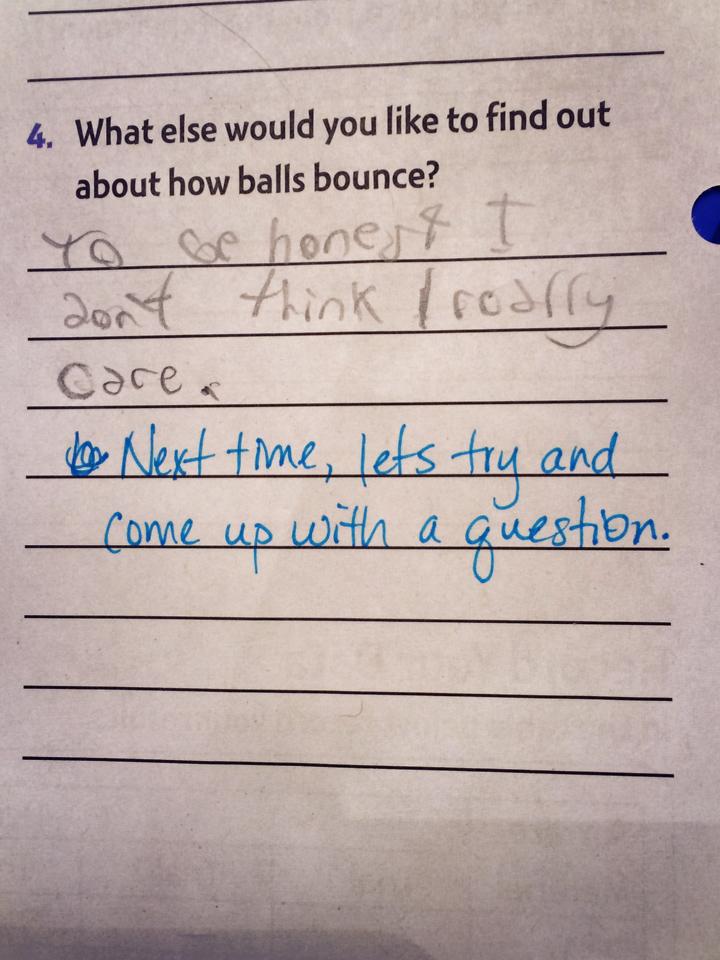 4. What else would you like to find out
about how balls bounce?
To be honest I
don't think I really
care.
Next time, lets try and
come up with a question.